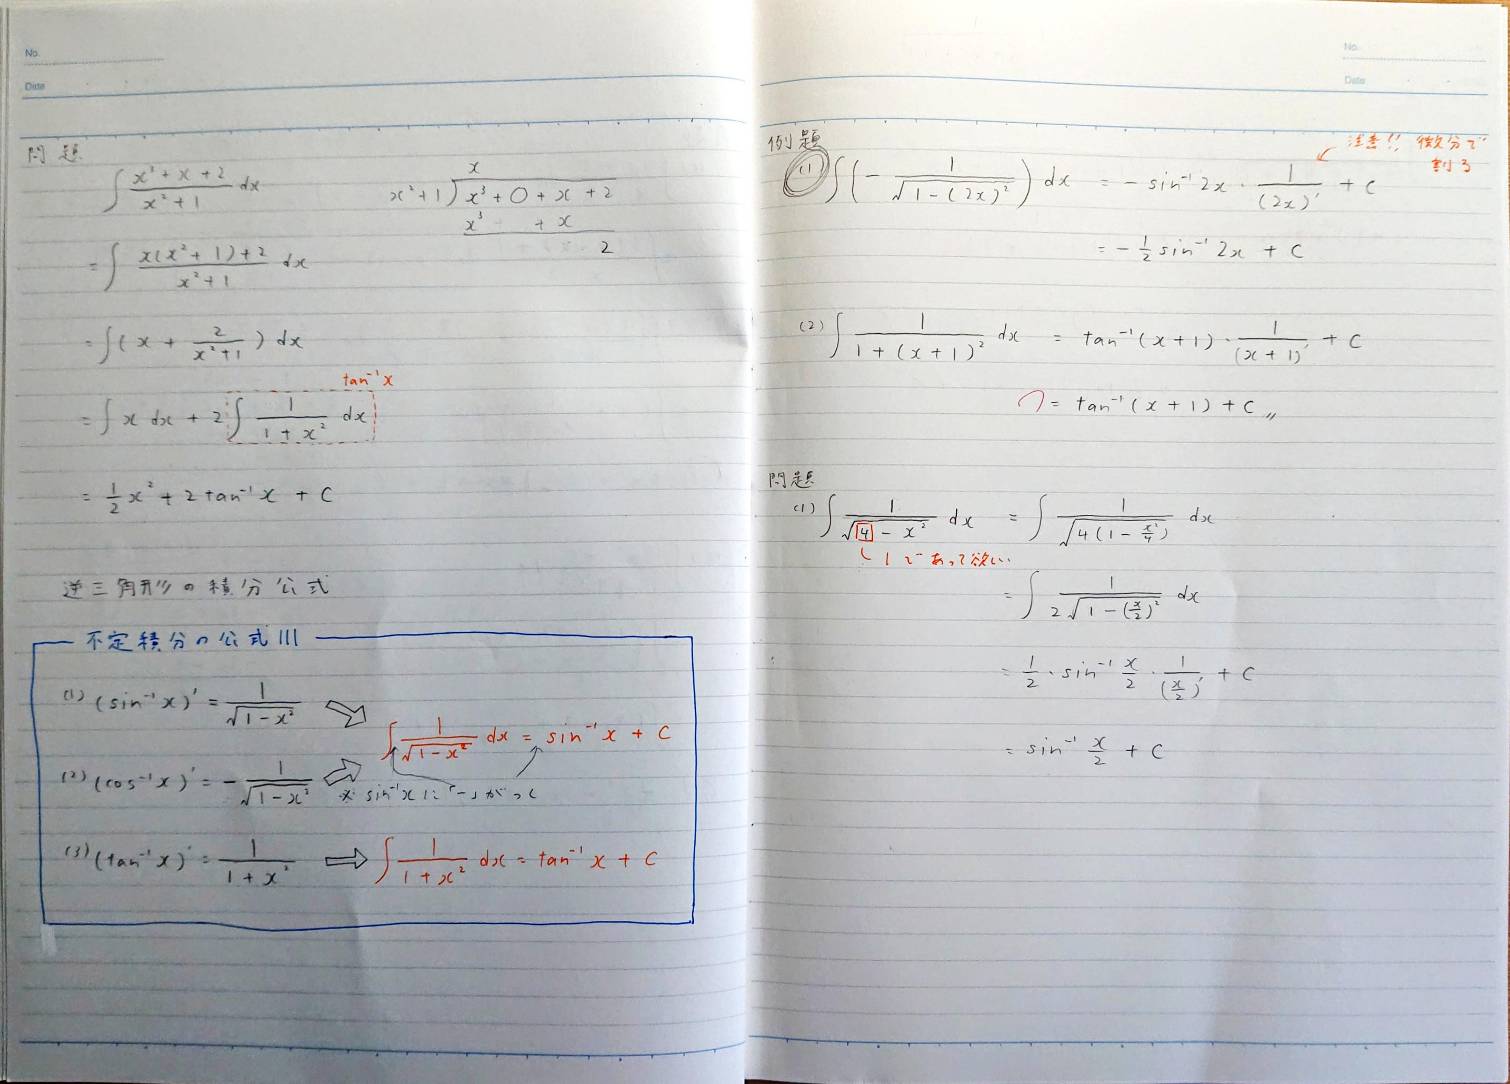 No.
Date
問題
∫ (x³ + x + 2)/(x² + 1) dx
x
x² + 1 ) x³ + 0 + x + 2
x³ + x
2
= ∫ (x(x² + 1) + 2)/(x² + 1) dx
= ∫ ( x + 2/(x² + 1) ) dx
tan⁻¹x
= ∫ x dx + 2 ∫ 1/(1 + x²) dx
= 1/2 x² + 2 tan⁻¹ x + C
逆三角形の積分公式
不定積分の公式 III
(1) (sin⁻¹ x)' = 1/√(1 - x²)
∫ 1/√(1 - x²) dx = sin⁻¹ x + C
(2) (cos⁻¹ x)' = - 1/√(1 - x²)
※ sin⁻¹x に「-」がつく
(3) (tan⁻¹ x)' = 1/(1 + x²) ⇒ ∫ 1/(1 + x²) dx = tan⁻¹ x + C
No.
Date
例題
注意!! 微分で
割る
(1) ∫ ( - 1/√(1 - (2x)²) ) dx = - sin⁻¹ 2x · 1/(2x)' + C
= - 1/2 sin⁻¹ 2x + C
(2) ∫ 1/(1 + (x + 1)²) dx = tan⁻¹ (x + 1) · 1/(x + 1)' + C
= tan⁻¹ (x + 1) + C 〃
問題
(1) ∫ 1/√(4 - x²) dx = ∫ 1/√(4(1 - x²/4)) dx
1であって欲しい
= ∫ 1/(2√(1 - (x/2)²)) dx
= 1/2 · sin⁻¹ x/2 · 1/(x/2)' + C
= sin⁻¹ x/2 + C